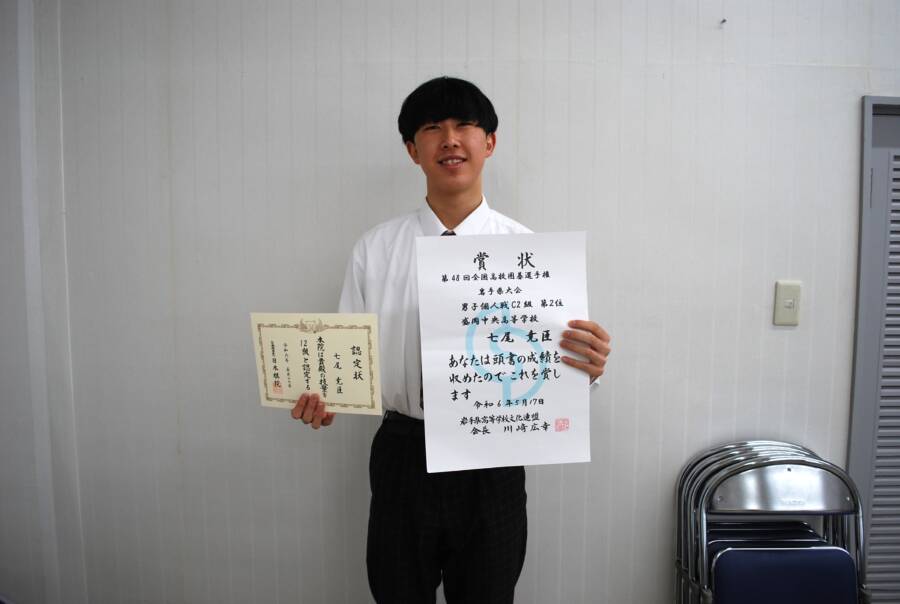 賞状
第48回全国高校囲碁選手権
岩手県大会
男子個人戦C2級 第2位
盛岡中央高等学校
七尾 克臣
あなたは頭書の成績を
収めたのでこれを賞し
ます
令和6年5月17日
岩手県高等学校文化連盟
会長 川崎広幸
認定状
七尾 克臣
本院は貴殿の技量を
12級と認定する
日本棋院